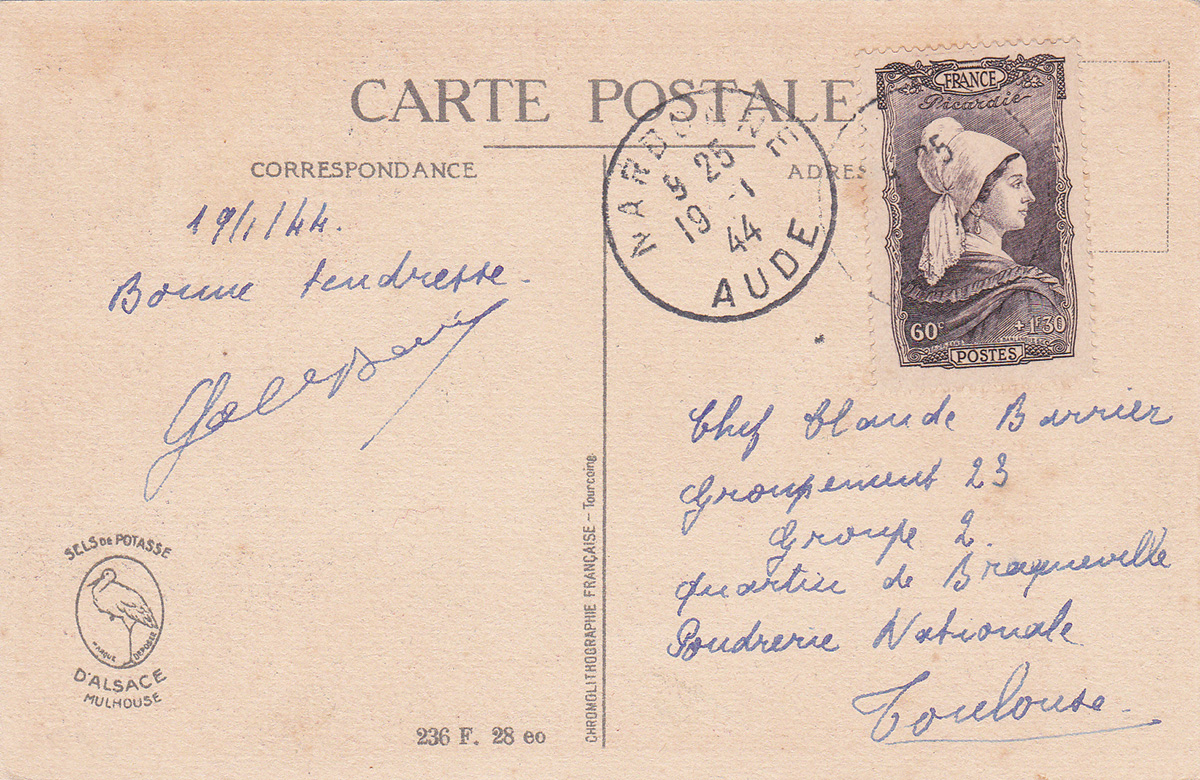 CARTE POSTALE
CORRESPONDANCE
19/1/44.
Bonne tendresse.
SELS DE POTASSE
MARQUE DÉPOSÉE
D'ALSACE
MULHOUSE
236 F. 28 eo
CHROMOLITHOGRAPHIE FRANÇAISE - Tourcoing.
NARBONNE
9 25
19 -1
44
AUDE
ADRES
FRANCE
Picardie
25
60c +1F30
POSTES
Chef Claude Barrier
Groupement 23
Groupe 2.
Quartier de Braqueville
Poudrerie Nationale
Toulouse.